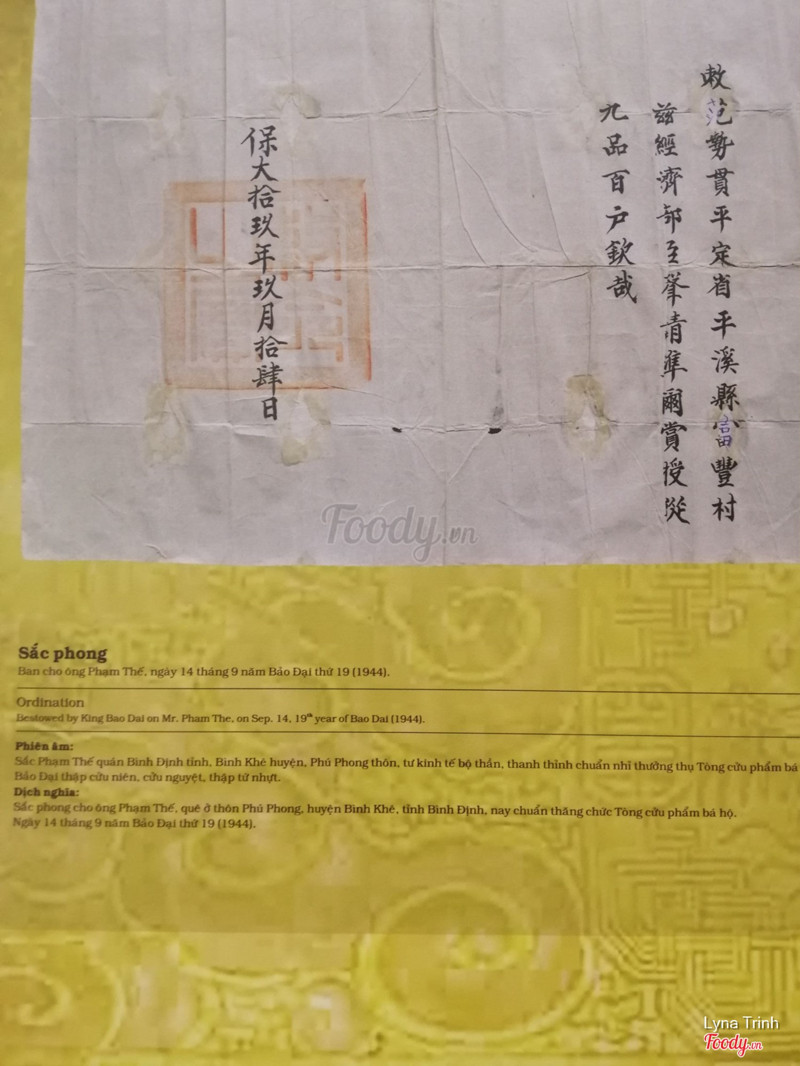 敕范勢貫平定省平溪縣富豐村
茲經濟部臣聲請準爾賞授從
九品百户欽哉
保大拾玖年玖月拾肆日
Foody.vn
Sắc phong
Ban cho ông Phạm Thế, ngày 14 tháng 9 năm Bảo Đại thứ 19 (1944).
Ordination
Bestowed by King Bao Dai on Mr. Pham The, on Sep. 14, 19th year of Bao Dai (1944).
Phiên âm:
Sắc Phạm Thế quán Bình Định tỉnh, Bình Khê huyện, Phú Phong thôn, tư kinh tế bộ thần, thanh thỉnh chuẩn nhĩ thưởng thụ Tòng cửu phẩm bá
Bảo Đại thập cửu niên, cửu nguyệt, thập tứ nhựt.
Dịch nghĩa:
Sắc phong cho ông Phạm Thế, quê ở thôn Phú Phong, huyện Bình Khê, tỉnh Bình Định, nay chuẩn thăng chức Tòng cửu phẩm bá hộ.
Ngày 14 tháng 9 năm Bảo Đại thứ 19 (1944).
Lyna Trinh
Foody.vn